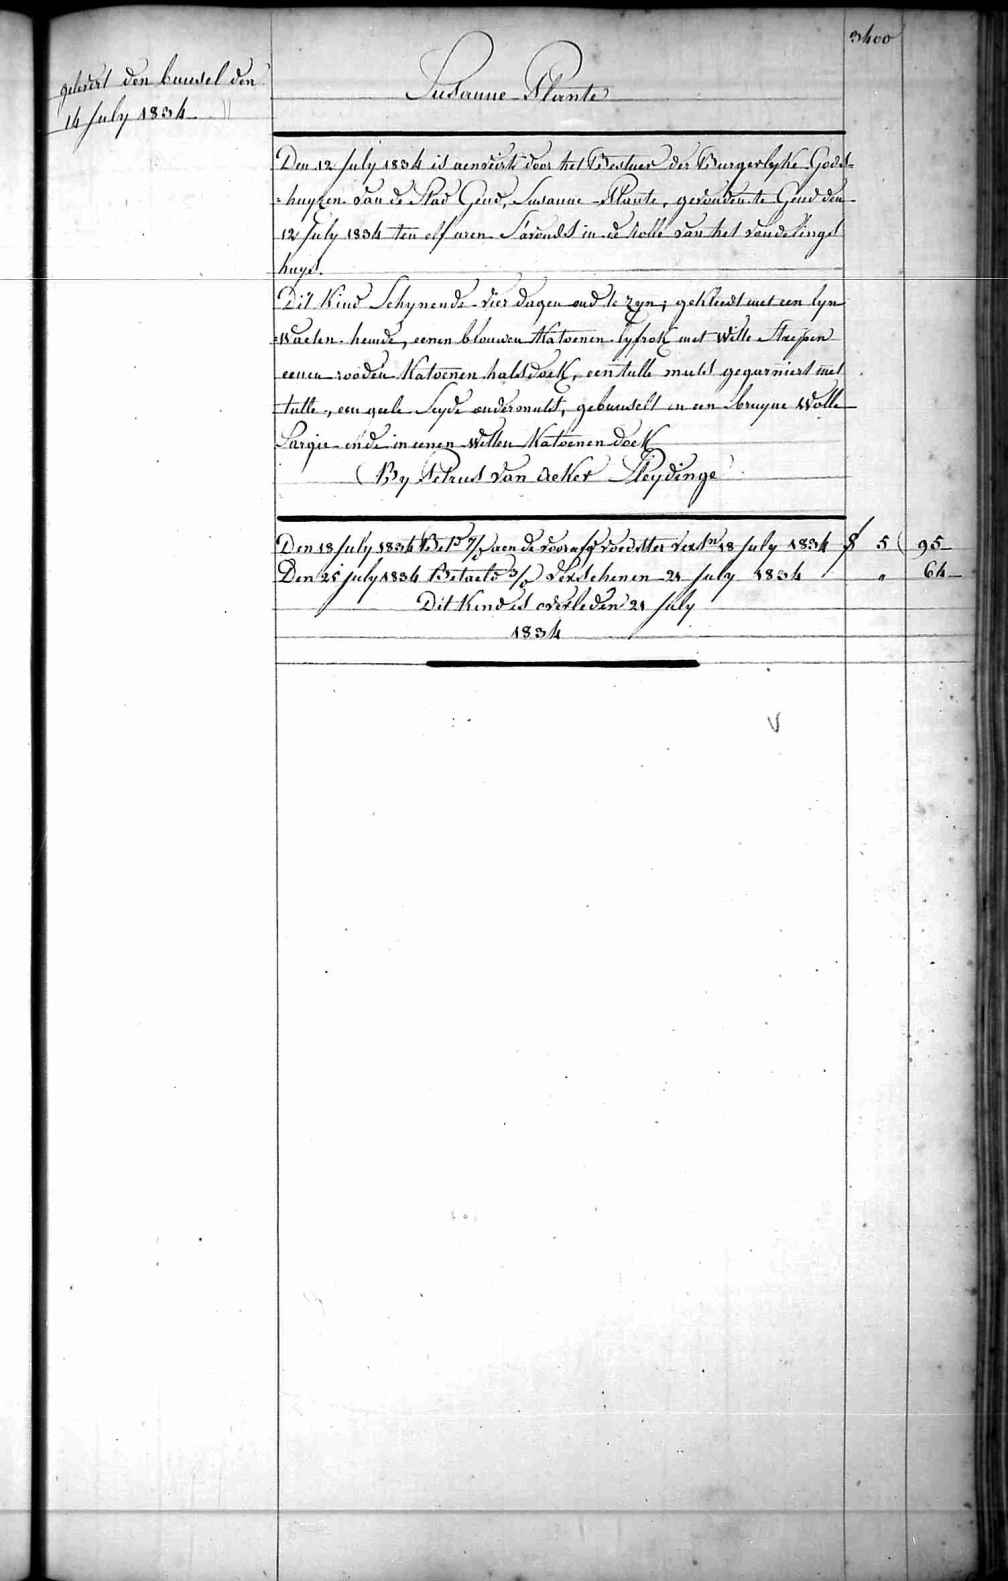 3400
gelevert den bunsel den
14 July 1834
Susanne Plante
Den 12 July 1834 is aenveirt door het Bestuer der Burgerlyke Gods=
=huyzen van de Stad Gend, Susanne Plante, gevonden te Gend den
12 July 1834 ten elf uren S'avonds in de rolle van het vondelings
huys.
Dit Kind Schynende vier dagen oud te zyn; gekleedt met een lyn
=waeten hemde, eenen blouwen Katoenen lyfrok met witte streepen
eenen rooden Katoenen halsdoek, een tulle muts gegarniert met
tulle, een geele Seyde ondermuts, gebunselt in een bruyne Wolle
Sargie ende in eenen witten Katoenen doek
By Petrus van Acker Sleydinge
Den 18 July 1834 Bet.d aen de voorafg voedster vers.n 18 July 1834 5 95
Den 25 July 1834 Betaeld verschenen 21 July 1834 " 64
Dit Kind is overleden 21 July
1834